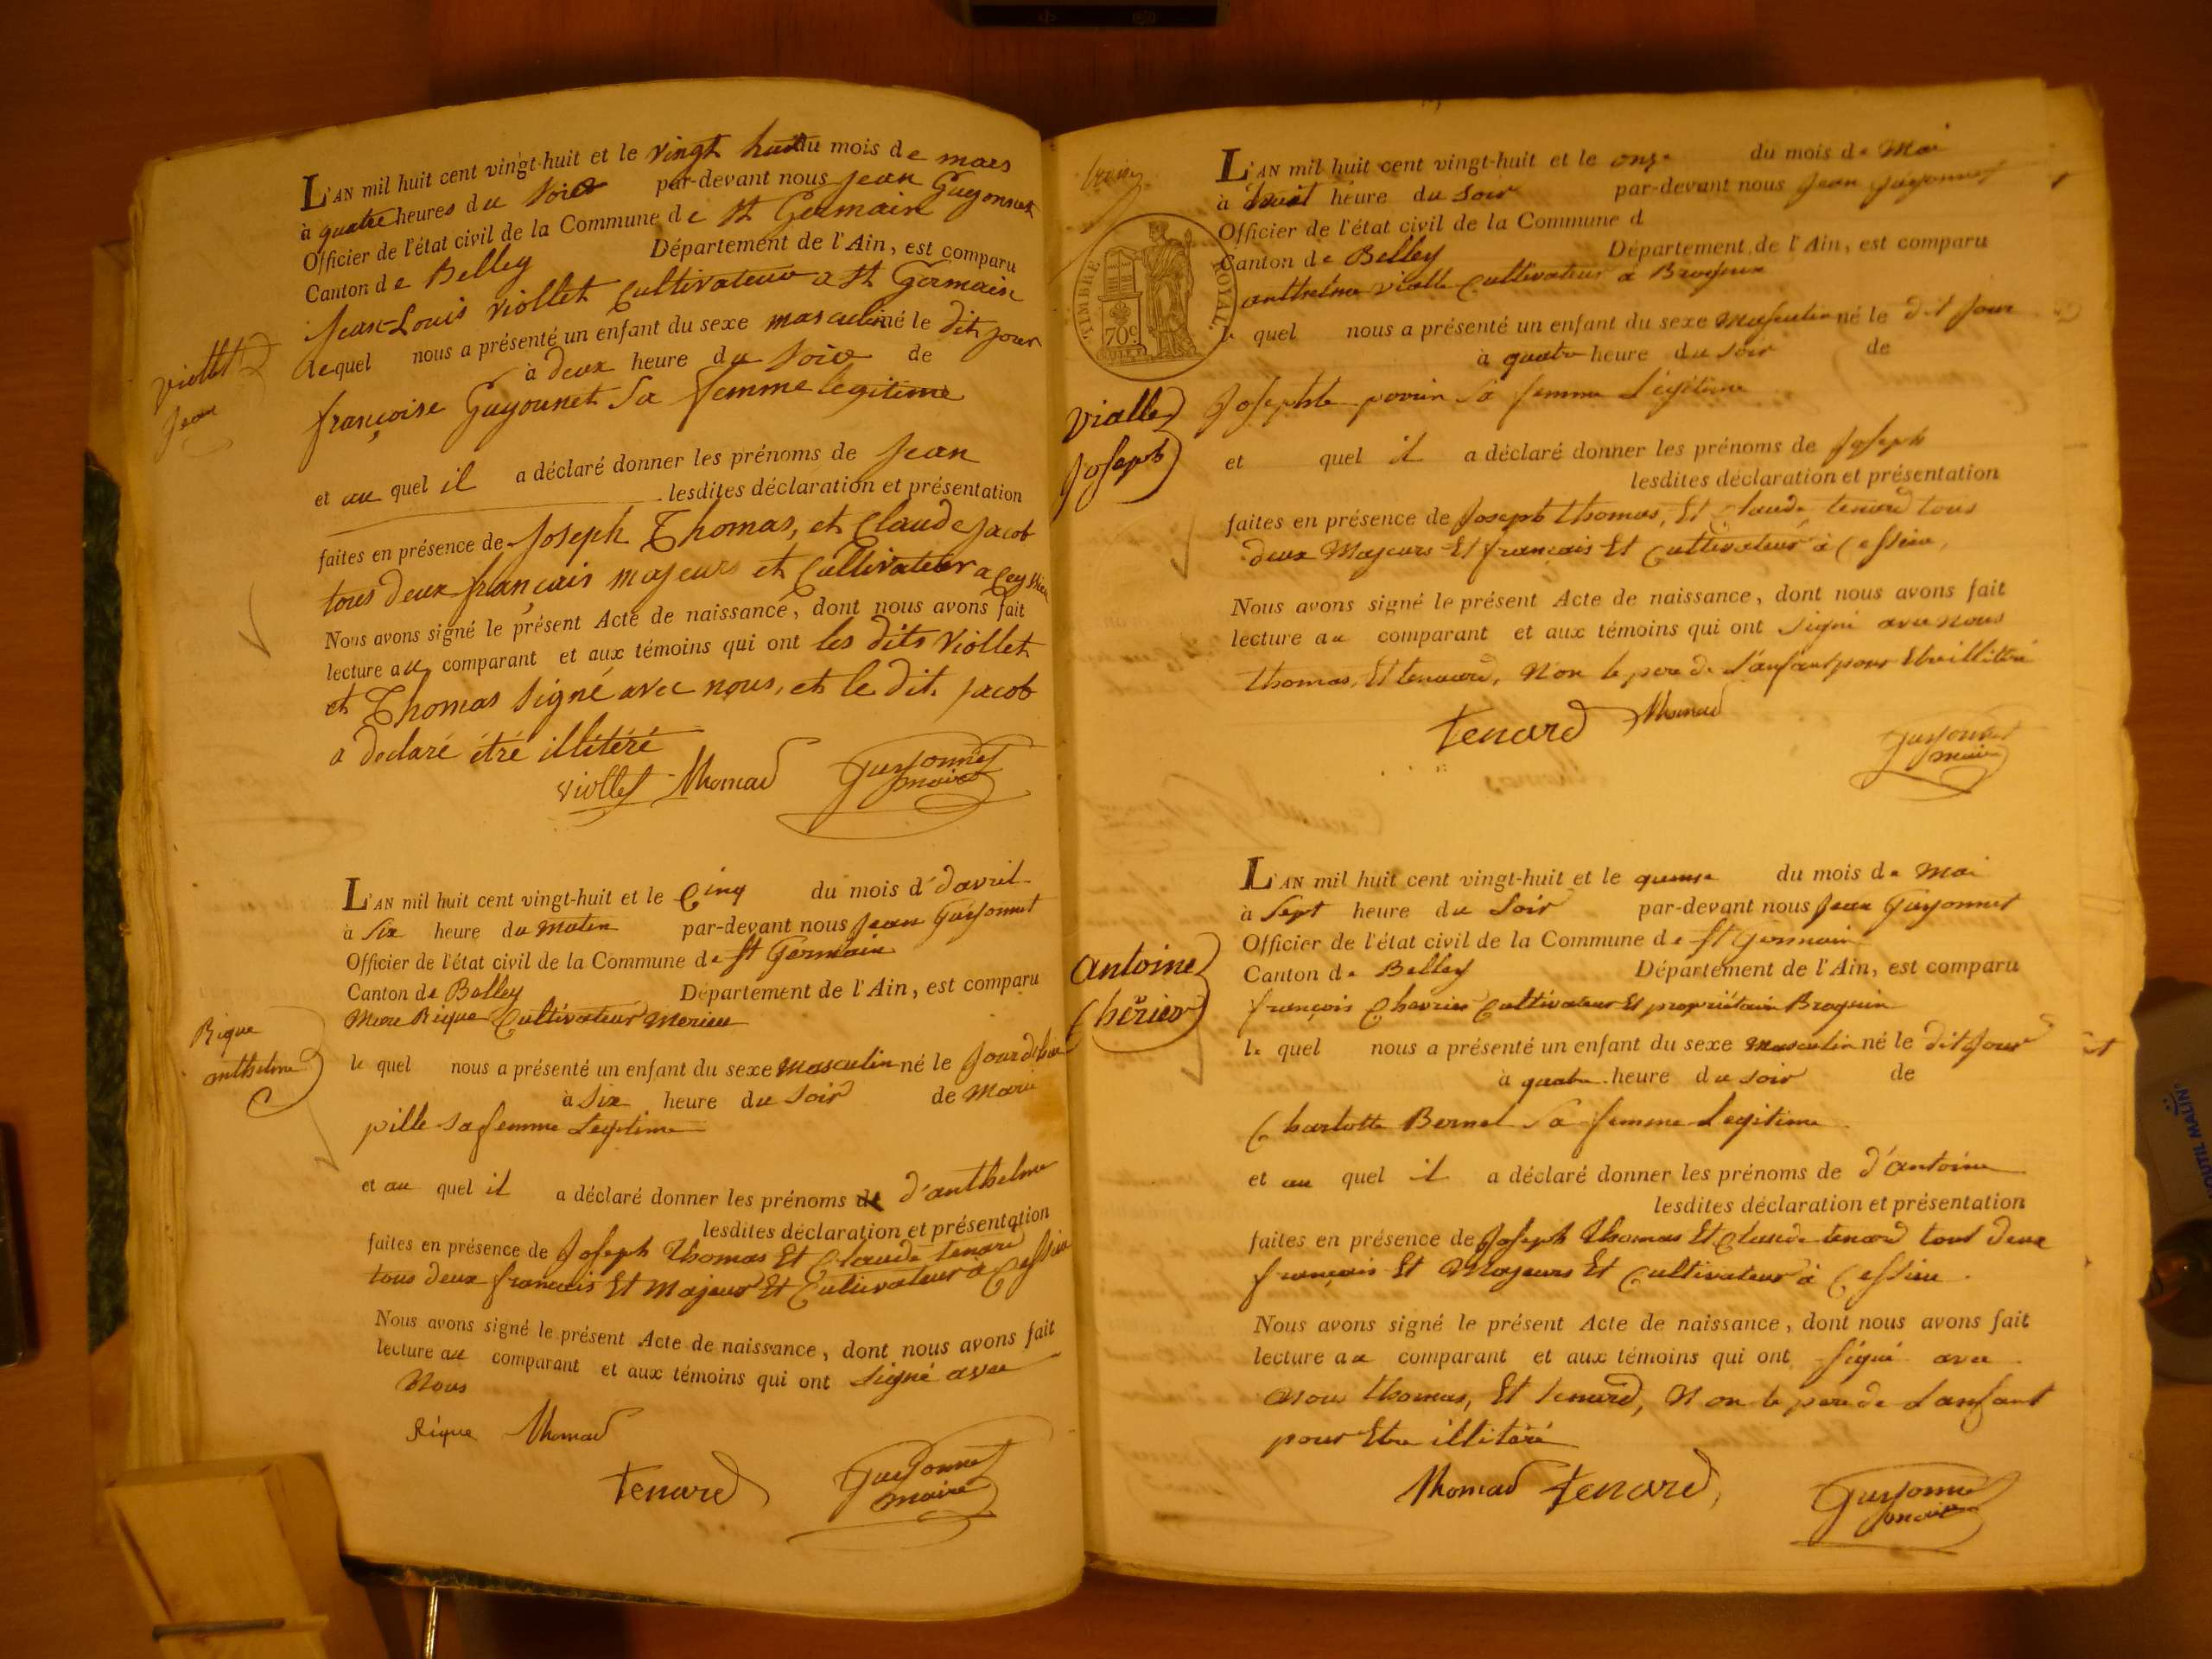 L'AN mil huit cent vingt-huit et le vingt huit du mois de mars
à quatre heures du Soir par-devant nous Jean Guyonnet
Officier de l'état civil de la Commune de St Germain
Canton de Belley Département de l'Ain, est comparu
Jean-Louis viollet Cultivateur a St Germain
lequel nous a présenté un enfant du sexe masculin né le dit jour
à deux heure du Soir de
françoise Guyonnet Sa femme legitime
viollet
Jean
et au quel il a déclaré donner les prénoms de Jean
lesdites déclaration et présentation
faites en présence de Joseph Thomas, et Claude Jacob
tous deux français majeurs et Cultivateur a Ceyssieu
Nous avons signé le présent Acte de naissance, dont nous avons fait
lecture au comparant et aux témoins qui ont les dits Viollet
et Thomas Signé avec nous, et le dit Jacob
a declaré étre illétéré
viollet Thomas Guyonnet
maire
L'AN mil huit cent vingt-huit et le Cinq du mois d'davril
à Six heure du Matin par-devant nous Jean Guyonnet
Officier de l'état civil de la Commune de St Germain
Canton de Belley Département de l'Ain, est comparu
Rique Cultivateur
Rique
anthelme
le quel nous a présenté un enfant du sexe Masculin né le Jour d'hier
à Six heure du Soir de Marie
pille Sa femme Legitime
et au quel il a déclaré donner les prénoms de d'anthelme
lesdites déclaration et présentation
faites en présence de Joseph Thomas Et Claude tenard
tous deux francais Et Majeur Et Cultivateur a Cessieu
Nous avons signé le présent Acte de naissance, dont nous avons fait
lecture au comparant et aux témoins qui ont Signé avec
Nous
Rique Thomas
tenard Guyonnet
maire
L'AN mil huit cent vingt-huit et le onze du mois de Mai
à huit heure du Soir par-devant nous Jean Guyonnet
Officier de l'état civil de la Commune d
Canton de Belley Département de l'Ain, est comparu
anthelme vialle Cultivateur a
TIMBRE ROYAL.
70c
le quel nous a présenté un enfant du sexe Masculin né le dit Jour
à quatre heure du Soir de
Josephte perrin Sa femme Legitime
vialle
Joseph
et quel il a déclaré donner les prénoms de Joseph
lesdites déclaration et présentation
faites en présence de Joseph thomas, Et Claude tenard tous
deux Majeurs Et francais Et Cultivateur à Cessieu,
Nous avons signé le présent Acte de naissance, dont nous avons fait
lecture au comparant et aux témoins qui ont Signé avec Nous
thomas, Et tenard, Non le pere de L'anfant pour Etre illitéré
tenard Thomas
Guyonnet
maire
L'AN mil huit cent vingt-huit et le quinze du mois de Mai
à Sept heure du Soir par-devant nous Jean Guyonnet
Officier de l'état civil de la Commune de St Germain
Canton de Belley Département de l'Ain, est comparu
françois Chevrier Cultivateur Et propriétaire
antoine
Chèrier
le quel nous a présenté un enfant du sexe Masculin né le dit Jour
à quatre heure du Soir de
Charlotte Bernel Sa femme Legitime
et au quel il a déclaré donner les prénoms de d'antoine
lesdites déclaration et présentation
faites en présence de Joseph Thomas Et Claude tenard tout deux
français Et Majeurs Et Cultivateur à Cessieu.
Nous avons signé le présent Acte de naissance, dont nous avons fait
lecture au comparant et aux témoins qui ont Signé avec
Nous thomas, Et tenard, Non le pere de L'anfant
pour Etre illitéré
Thomas tenard
Guyonnet
maire
OUTIL MALIN